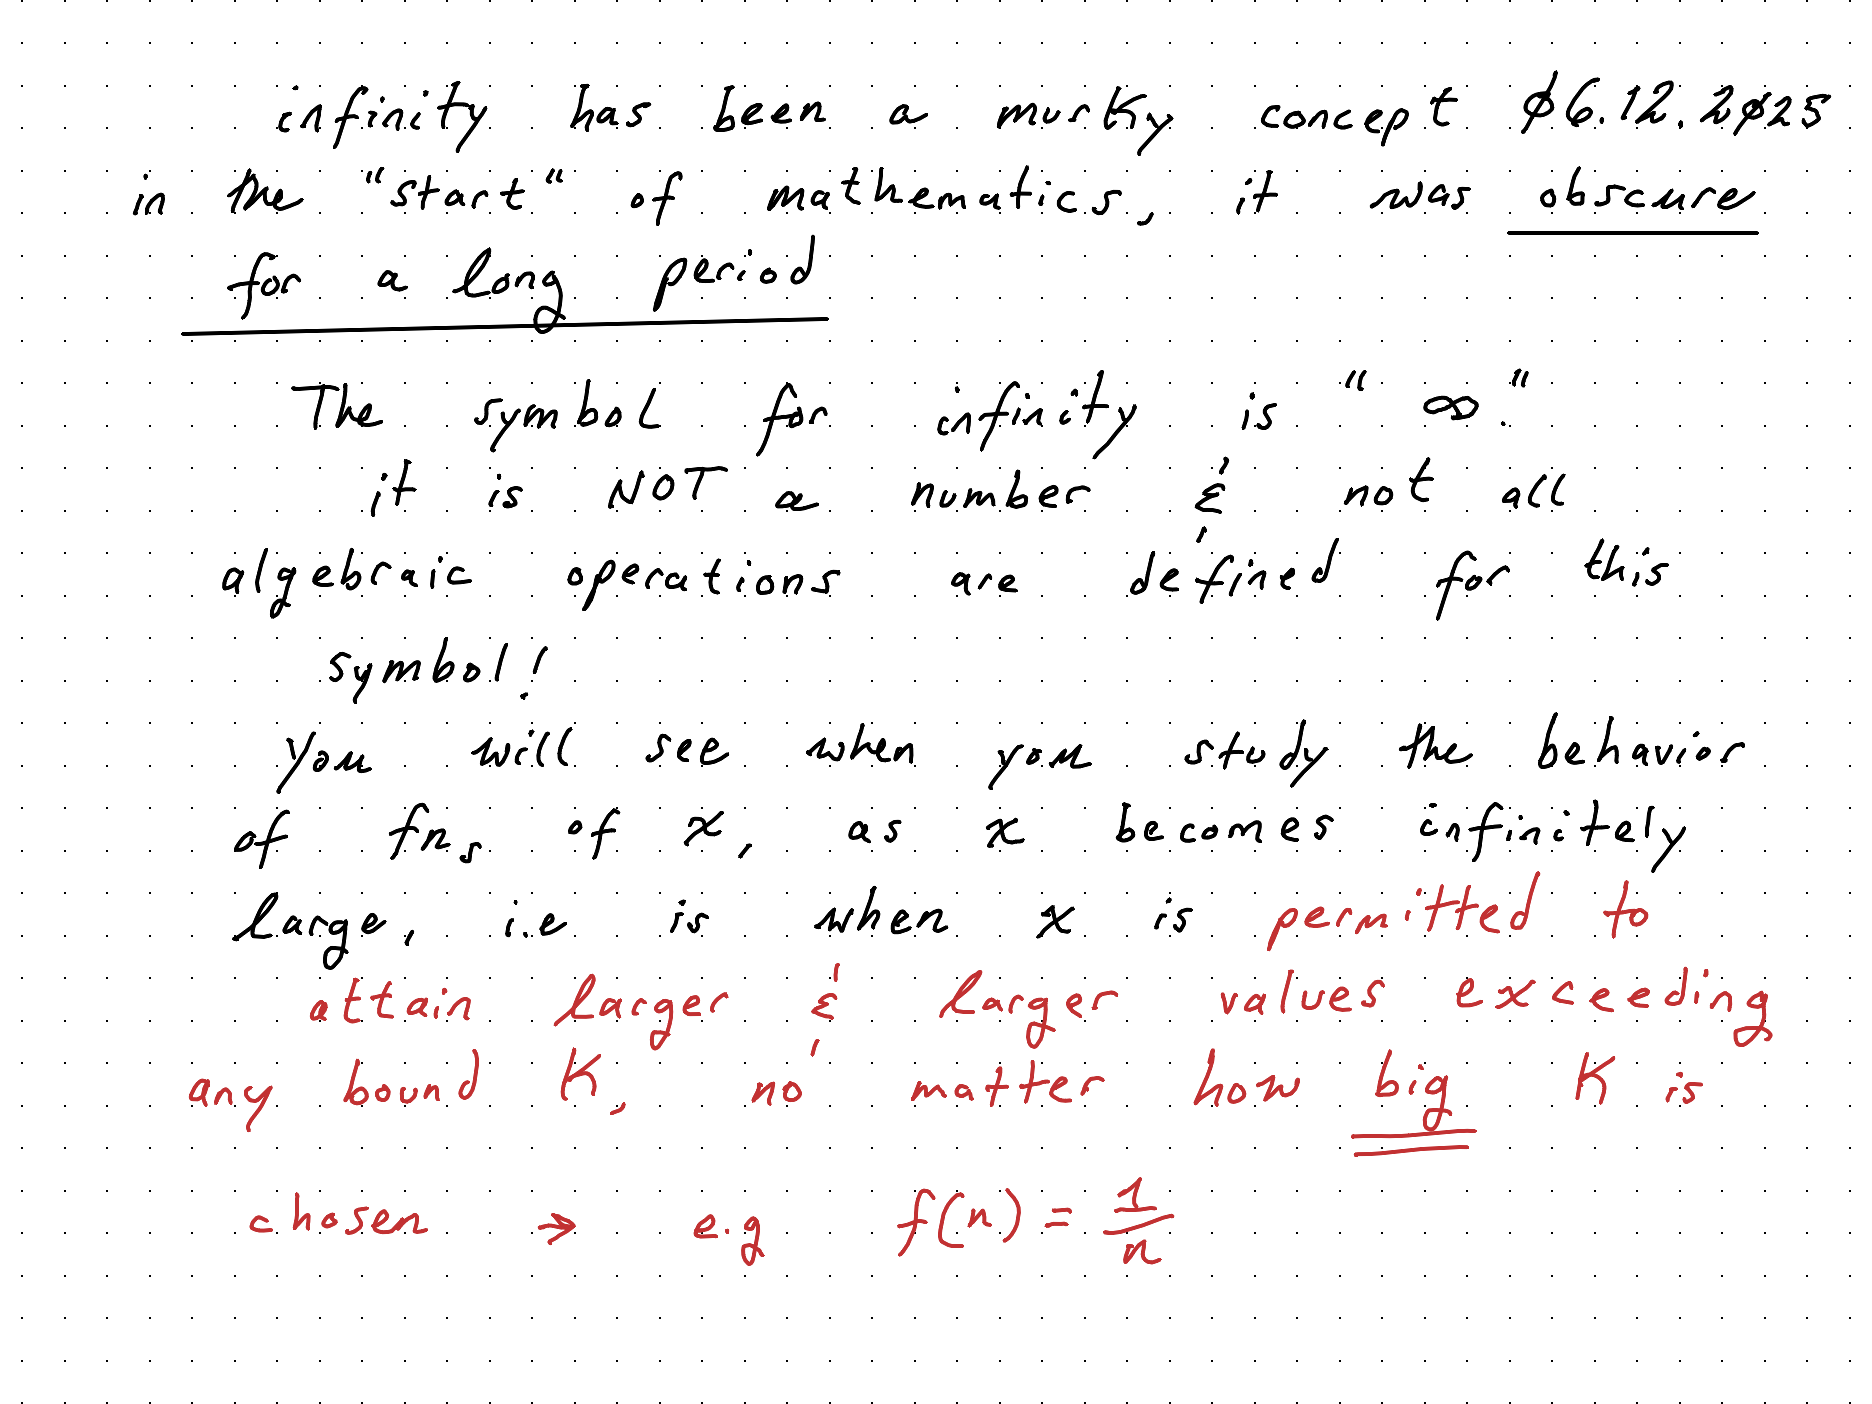 infinity has been a murky concept 06.12.2025
in the "start" of mathematics, it was obscure
for a long period
The symbol for infinity is "∞."
it is NOT a number & not all
algebraic operations are defined for this
symbol!
you will see when you study the behavior
of fns of x, as x becomes infinitely
large, i.e is when x is permitted to
attain larger & larger values exceeding
any bound K, no matter how big K is
chosen → e.g f(n) = 1/n